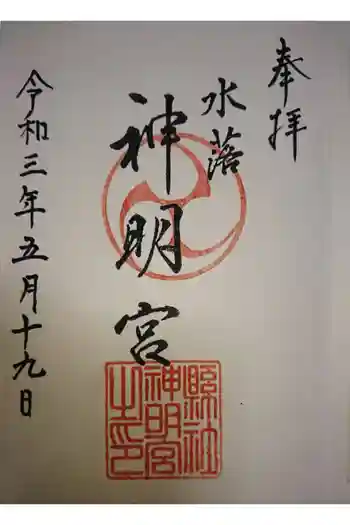 奉拝
水落
神明宮
令和三年五月十九日
縣社
神明宮
之印